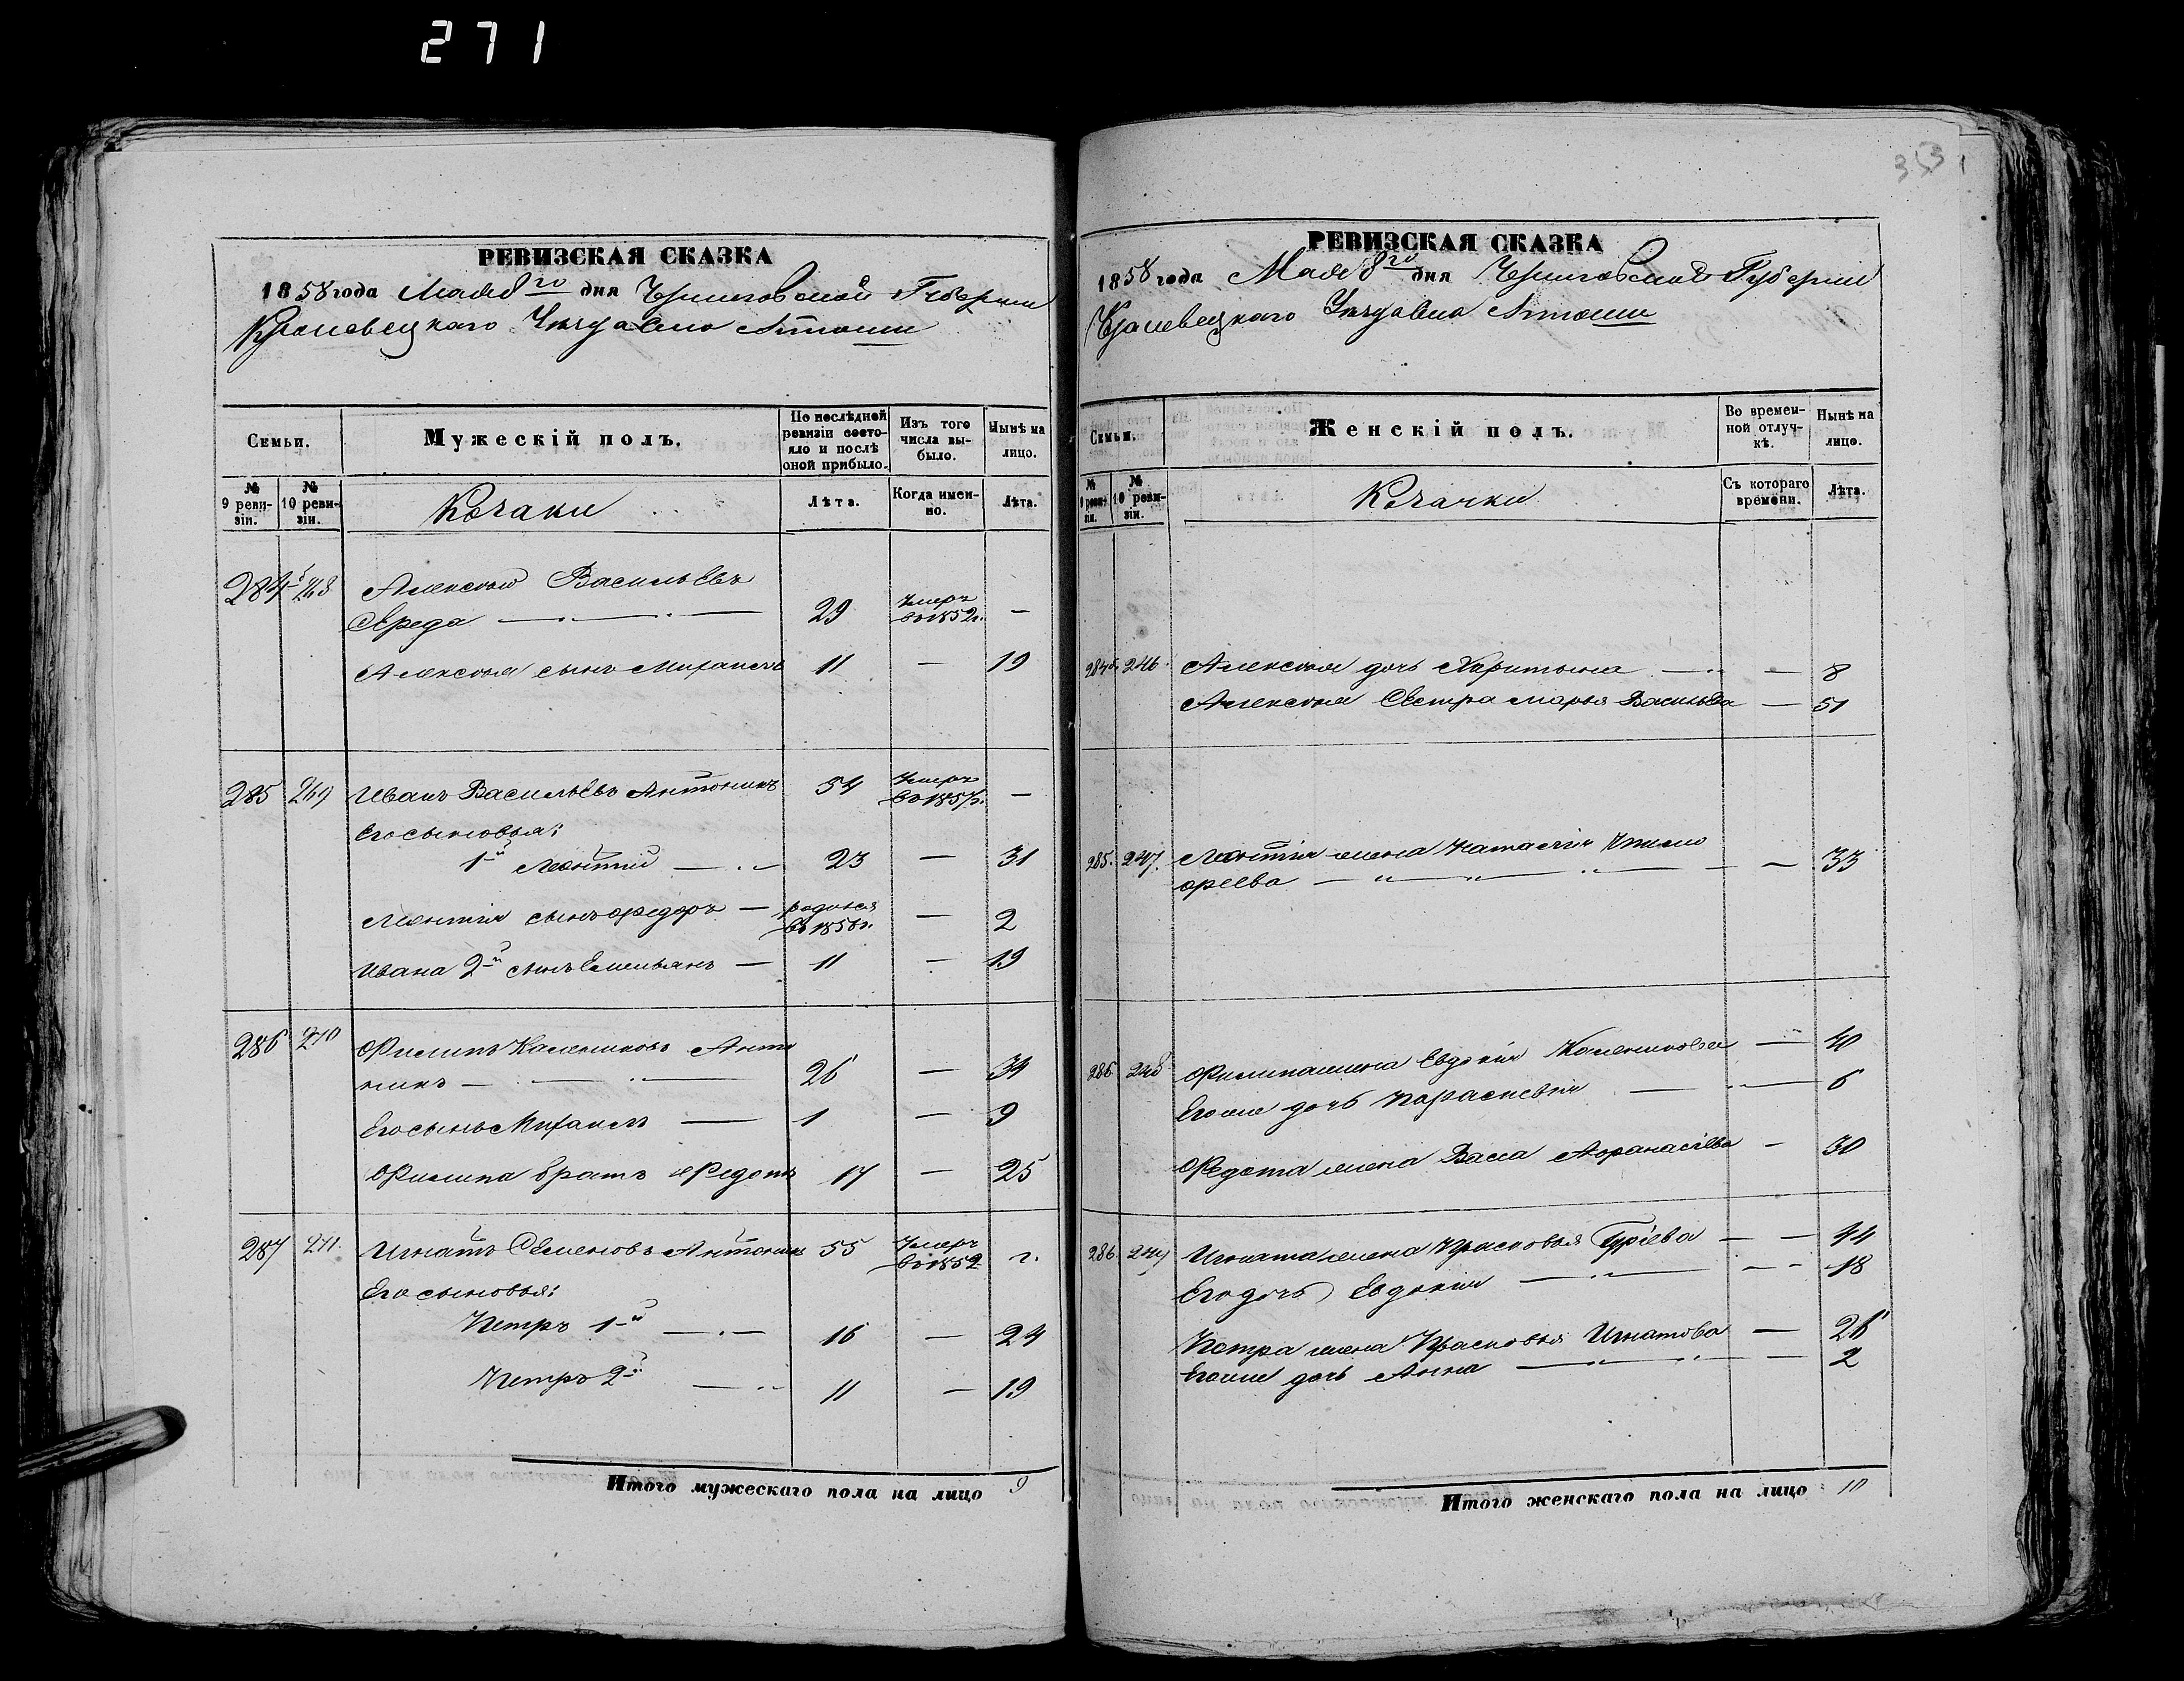 271
РЕВИЗСКАЯ СКАЗКА
1858 года Мая 8го дня Черниговской Губернии
Кролевецкаго Уѣзда Села
Семьи.
Мужескій полъ.
По послѣдней ревизіи состояло и послѣ оной прибыло.
Изъ того числа выбыло.
Нынѣ на лицо.
№ 9 ревизіи.
№ 10 ревизіи.
Козаки
Лѣта.
Когда именно.
Лѣта.
284 268 Алексѣй Васильевъ
Середа — 29 Умеръ въ 1852 г. —
Алексѣя сынъ Михаилъ 11 — 19
285 269 Иванъ Васильевъ Антоникъ 54 Умеръ въ 1857 г. —
Его сыновья:
1й Леонтій — 23 — 31
Леонтія сынъ Федоръ — родился въ 1856 г. — 2
Ивана 2й сынъ Емельянъ — 11 — 19
286 270 Филипъ Калениковъ Анто
никъ — 26 — 34
Его сынъ Михаилъ — 1 — 9
Филипа братъ Федотъ 17 — 25
287 271. Игнатъ Семеновъ Антоникъ 55 Умеръ въ 1852 г.
Его сыновья:
Петръ 1й — 16 — 24
Петръ 2й — 11 — 19
Итого мужескаго пола на лицо 9
353
РЕВИЗСКАЯ СКАЗКА
1858 года Мая 8го дня Черниговской Губернии
Кролевецкаго Уѣзда Села
Семьи.
Женскій полъ.
Во временной отлучкѣ.
Нынѣ на лицо.
№ 9 ревизіи.
№ 10 ревизіи.
Козачки
Съ котораго времени.
Лѣта.
284 246. Алексѣя дочь Харитына — — 8
Алексѣя Сестра Марья Васильева — 51
285. 247. Леонтія жена Наталія Тимо
феева — — 33
286 248 Филипа жена Евдокія Каленикова — 40
Его же дочь Параскевія — 6
Федота жена Васса Афанасіева — 30
286 249 Игната жена Прасковья Гуріева — — 44
Его дочь Евдокия — — 18
Петра жена Прасковья Игнатова — 26
Его же дочь Анна — 2
Итого женскаго пола на лицо 10